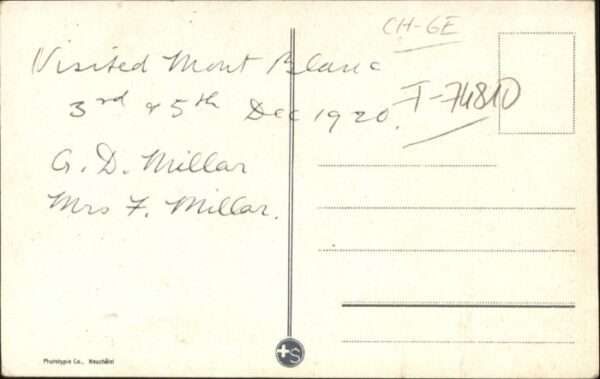 CH-GE
Visited Mont Blanc
3rd & 5th Dec 1920.
I-74810
G. D. Millar
Mrs F. Millar.
Phototypie Co., Neuchâtel
+S